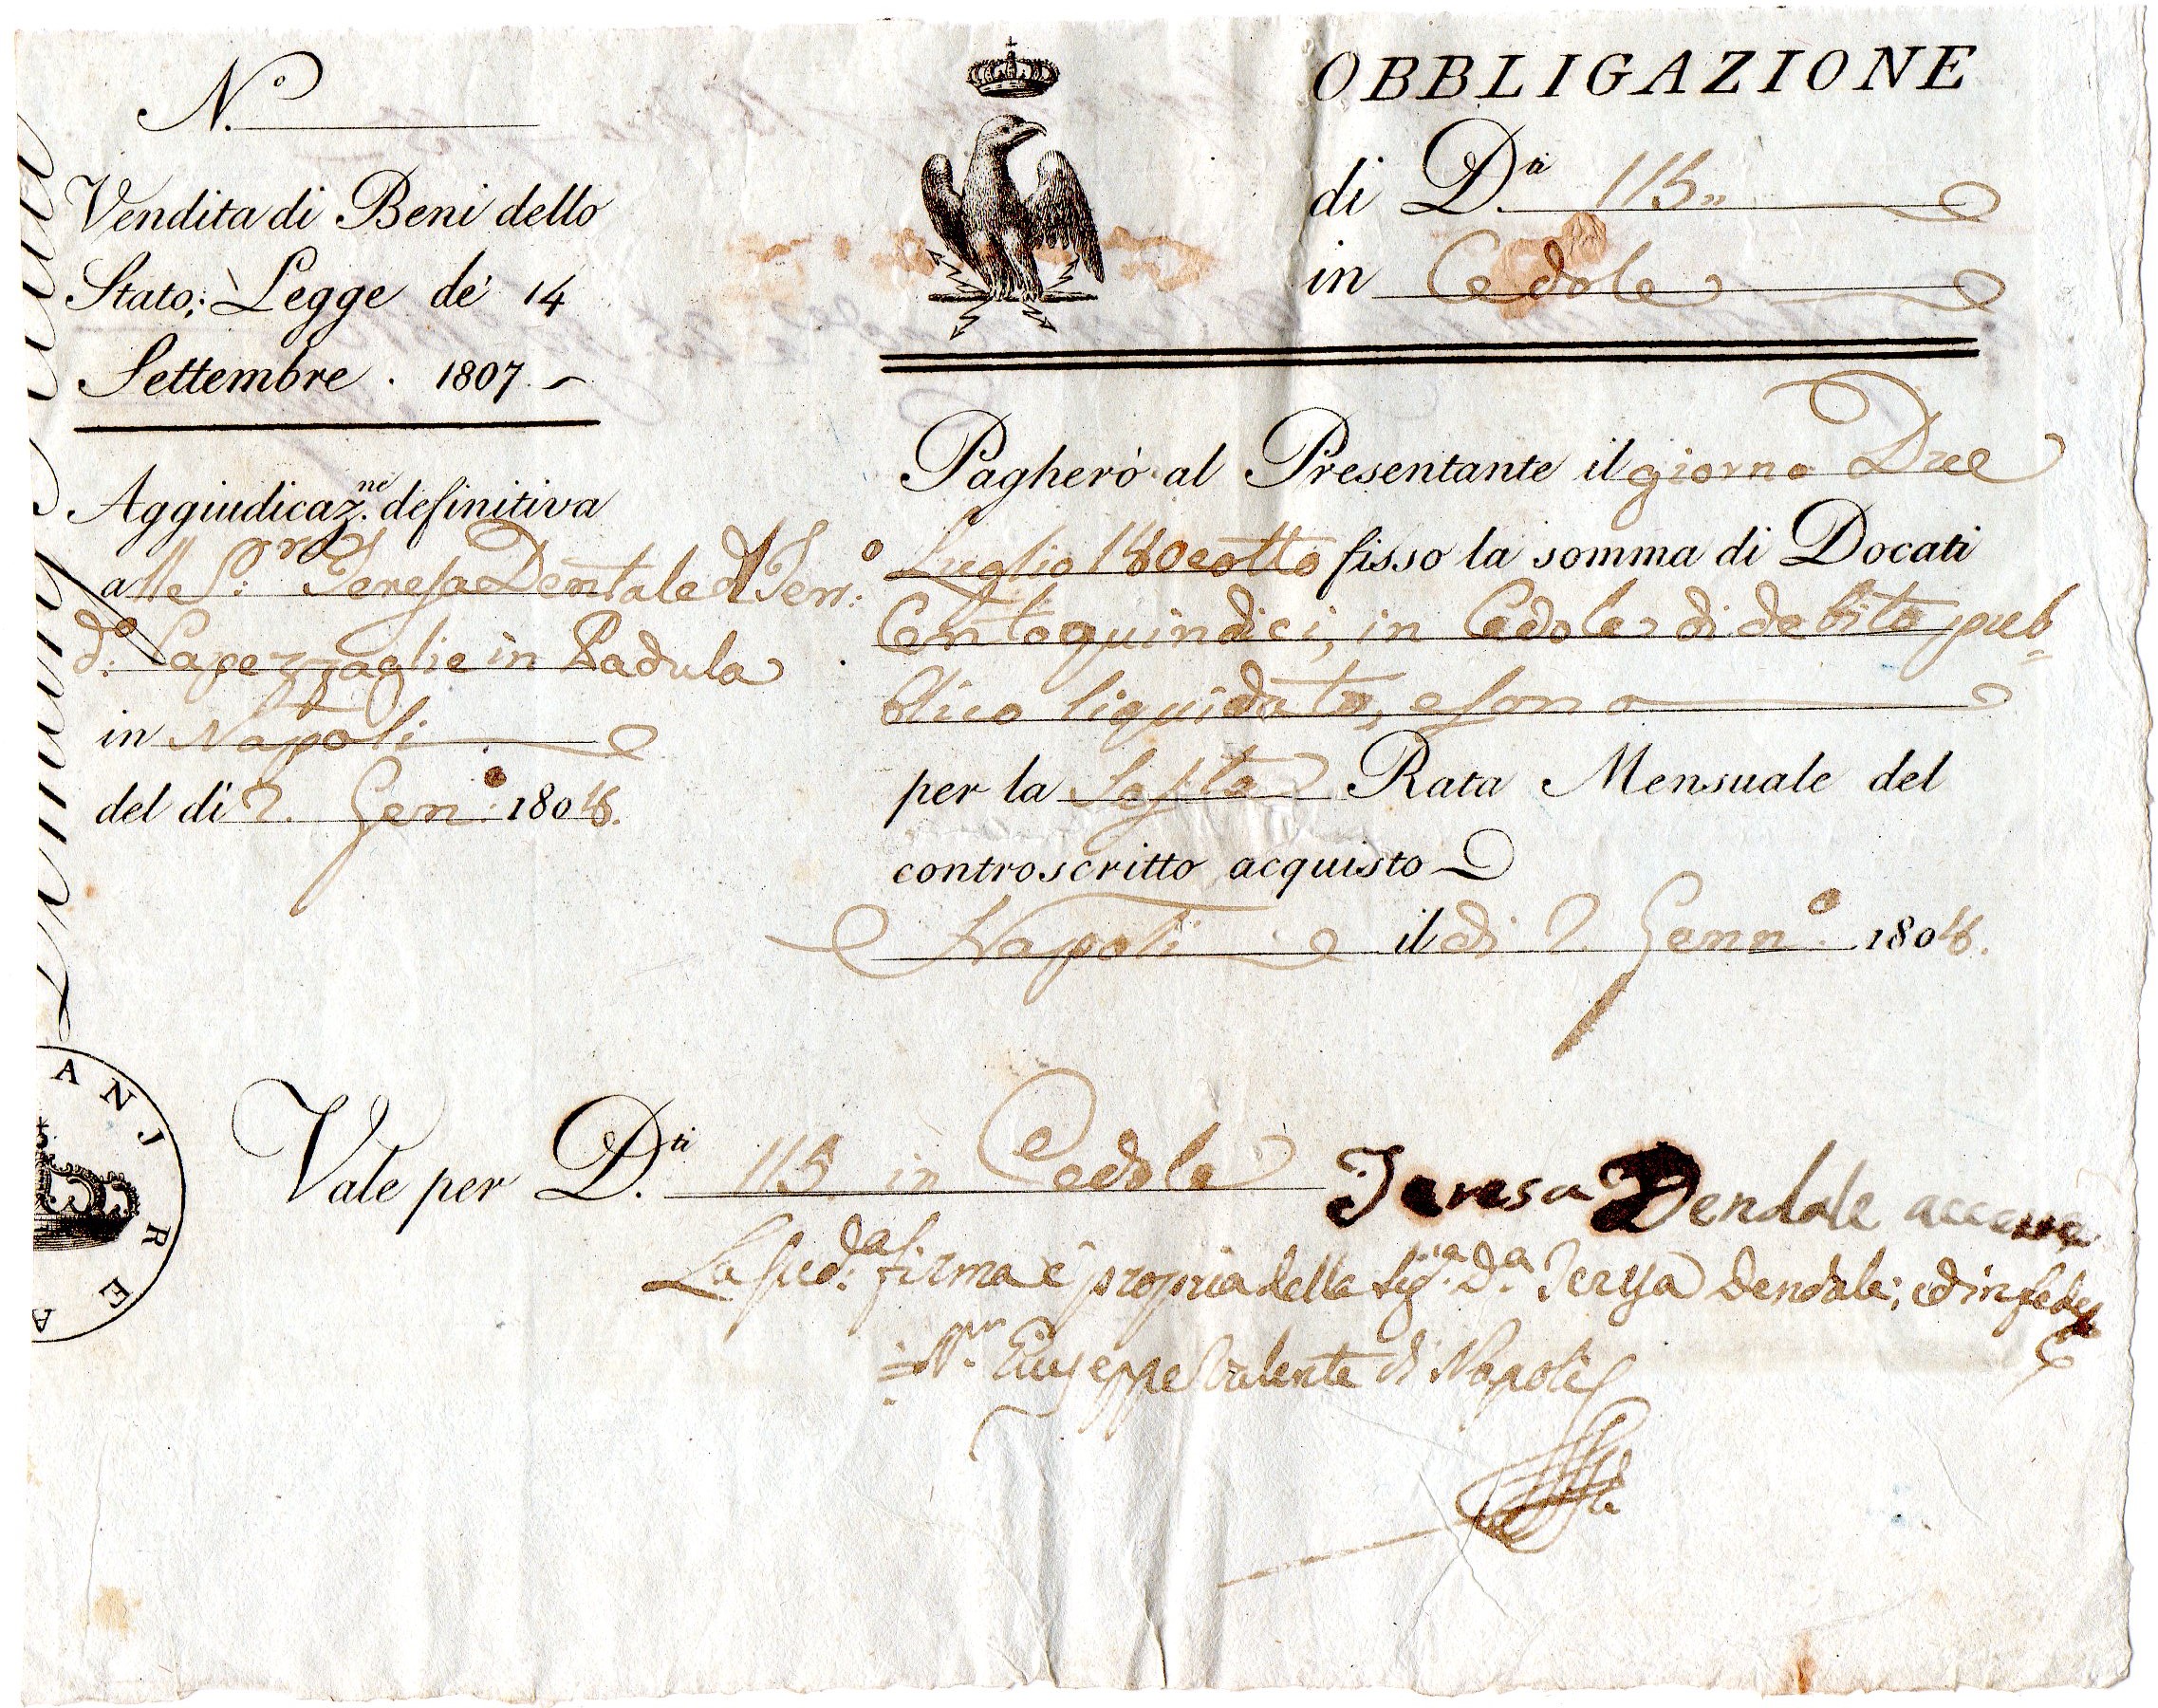 N.º
Vendita di Beni dello
Stato; Legge de' 14
Settembre. 1807.
Aggiudicaz.ne definitiva
alle S.re Teresa Dentale
d.o in Padula
in Napoli
del dì 2. Gen.o 1808.
OBBLIGAZIONE
di D.ti 115,,
in Cedole
Pagherò al Presentante il giorno Due
Luglio 180eotto fisso la somma di Docati
Centoquindici, in Cedole di debito pub=
blico liquidato, e sono
per la Sesta Rata Mensuale del
controscritto acquisto
Napoli il dì 2. Genn.o 1808.
Vale per D.ti 115 in Cedole
Teresa Dendale
La sud.da firma è propria della Sig.ra D.a Teresa Dendale; ed in fede
N.r Giuseppe Valente di Napoli
A N J R E A